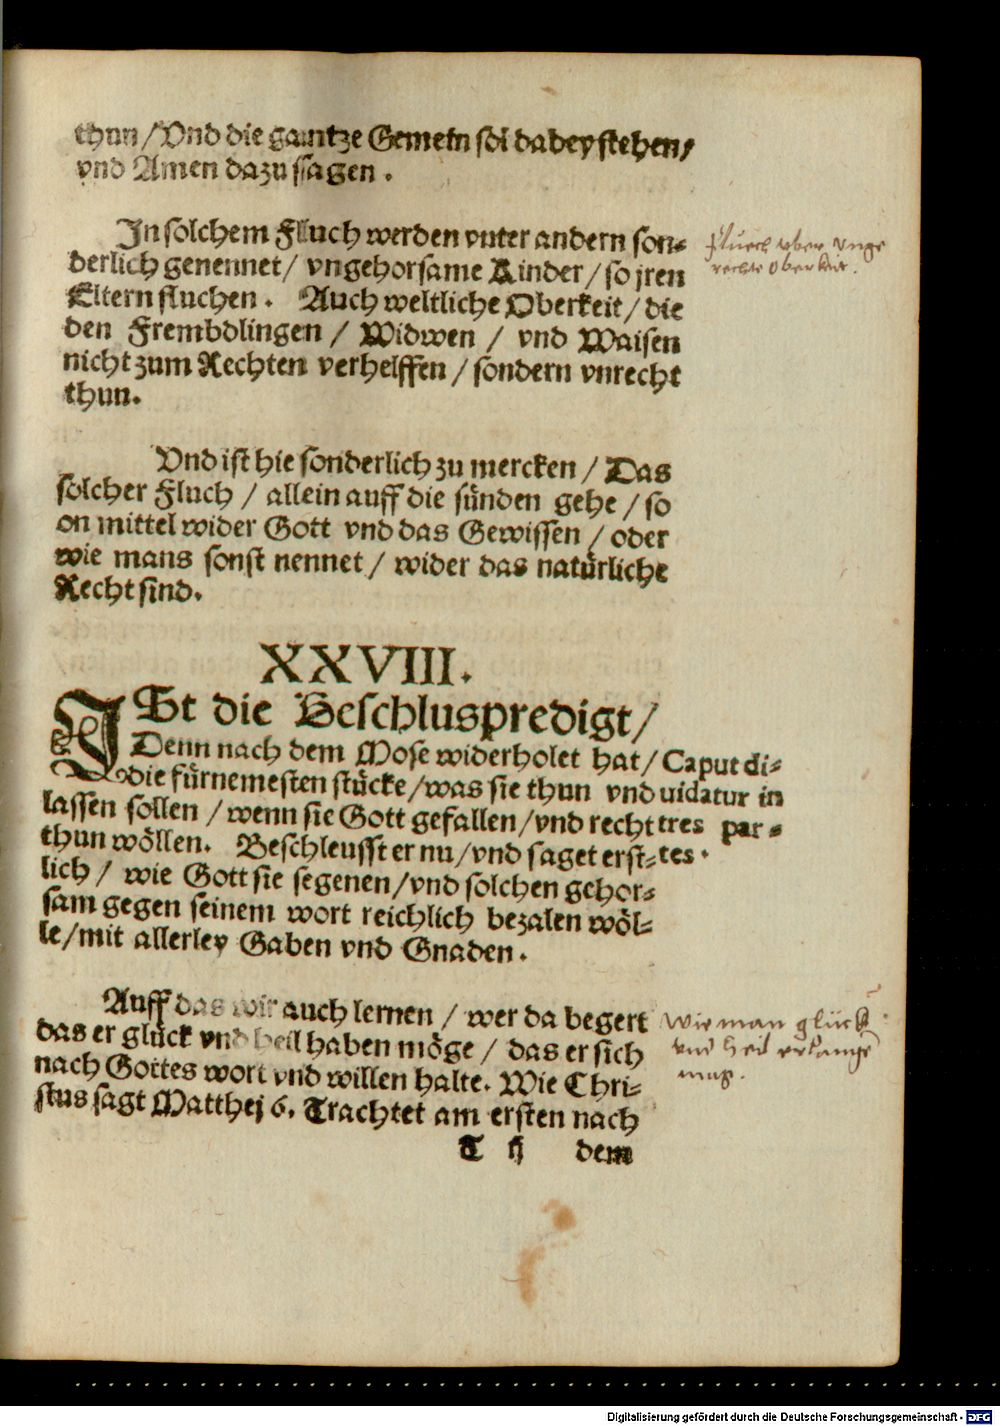 thun /Vnd die gantze Gemein sol dabey stehen/
vnd Amen dazu sagen.
In solchem Fluch werden vnter andern son-
derlich genennet/ vngehorsame Kinder/ so jren
Eltern fluchen. Auch weltliche Oberkeit/ die
den Frembdlingen / Widwen / vnd Waisen
nicht zum Rechten verhelffen / sondern vnrecht
thun.
Fluch vber vnge
rechte Oberkeit.
Vnd ist hie sonderlich zu mercken / Das
solcher Fluch / allein auff die sünden gehe / so
on mittel wider Gott vnd das Gewissen / oder
wie mans sonst nennet / wider das natürliche
Recht sind.
XXVIII.
ISt die Beschluspredigt/
Denn nach dem Mose widerholet hat/
die fürnemesten stücke/was sie thun vnd
lassen sollen / wenn sie Gott gefallen/vnd recht
thun wöllen. Beschleusst er nu/vnd saget erst-
lich / wie Gott sie segenen/vnd solchen gehor-
sam gegen seinem wort reichlich bezalen wöl-
le/mit allerley Gaben vnd Gnaden.
Caput di-
uidatur in
tres par-
tes.
Auff das wir auch lernen / wer da begert
das er glück vnd heil haben möge / das er sich
nach Gottes wort vnd willen halte. Wie Chri-
stus sagt Matthej 6. Trachtet am ersten nach
wie man glück
vnd heil erlange
mag.
T ij dem
Digitalisierung gefördert durch die Deutsche Forschungsgemeinschaft - DFG